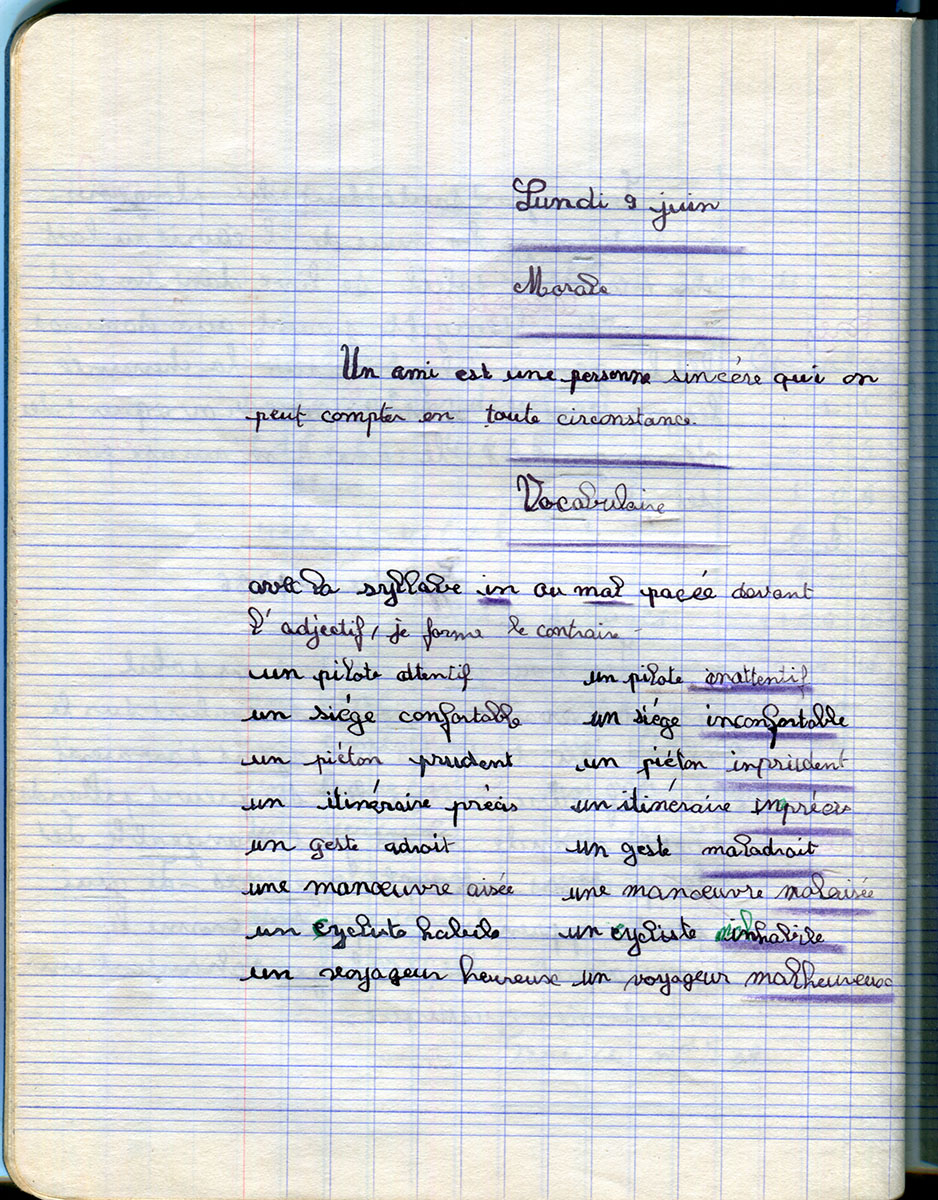 Lundi 9 juin
Morale
Un ami est une personne sincère qui on
peut compter en toute circonstance.
Vocabulaire
avec la syllabe in ou mal pacée devant
l'adjectif, je forme le contraire
un pilote attentif un pilote inattentif
un siége confortable un siége inconfortable
un piéton prudent un piéton inprudent
un itinéraire précis un itinéraire inprécis
un geste adroit un geste maladroit
une manœuvre aisée une manœuvre malaisée
un cycliste habile un cycliste inhabile
un voyageur heureux un voyageur malheureux